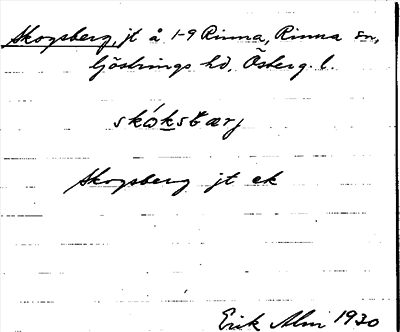 Skogsberg, jt å 1-9 Rinna, Rinna sn,
Göstrings hd, Österg. l.
skóksbærj
Skogsberg jt ek
Erik Alm 1930